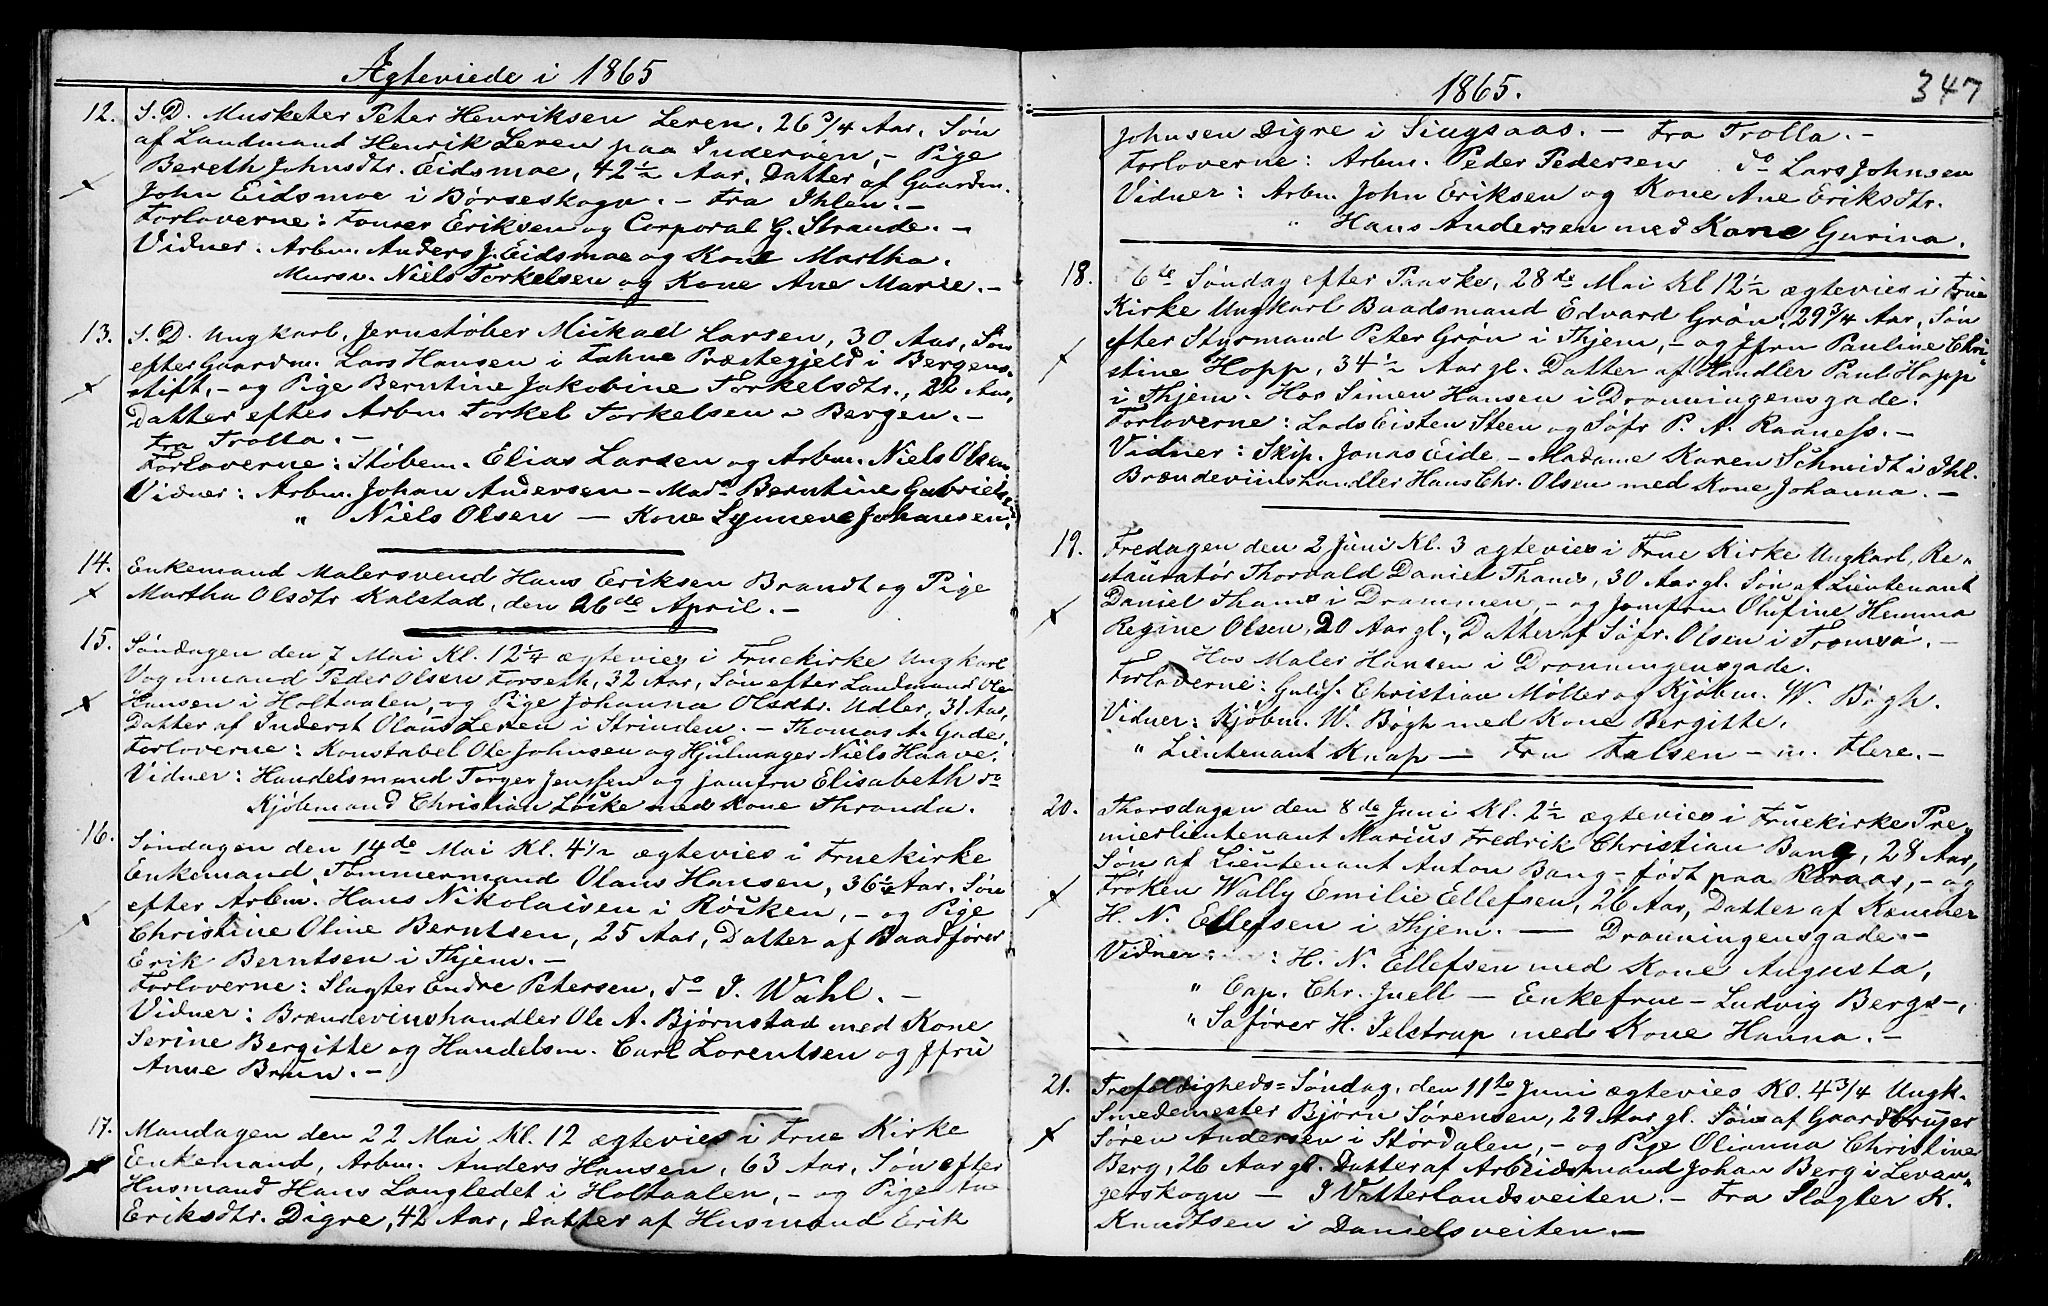 Ægteviede i 1865
12. S. D. Musketer Peter Henriksen Leren, 26 3/4 Aar, Søn
af Landmand Henrik Leren paa Inderøen, - Pige
Bereth Johnsdtr. Eidsmoe, 42 1/2 Aar, Datter af Gaardm.
John Eidsmoe i Børseskogn. - Fra Ihlen. -
Forloverne: Fourer Eriksen og Corporal G. Strande. -
Vidner: Arbm. Anders J. Eidsmoe og Kone Martha.
Mursv. Niels Torkelsen og Kone Ane Marie. -
13. S. D. Ungkarl, Jernstøber Mickael Larsen, 30 Aar, Søn
efter Gaardm. Lars Hansen i Fahne Præstegjeld i Bergens-
stift, - og Pige Berntine Jakobine Torkelsdtr., 22 Aar,
Datter efter Arbm. Torkel Torkelsen i Bergen. -
Fra Trolla. -
Forloverne: Støbem. Elias Larsen og Arbm. Niels Olsen
Vidner: Arbm. Johan Andersen - Mad. Berntine Gabriels
" Niels Olsen - Kone Synneve Johansen.
14. Enkemand Malersvend Hans Eriksen Brandt og Pige
Martha Olsdtr Kalstad, den 26de April. -
15. Søndagen den 7 Mai Kl. 12 1/4 ægtevies i Fruekirke Ungkarl
Vognmand Peder Olsen Forseth, 32 Aar, Søn efter Landmand Ole
Hansen i Holtaalen, og Pige Johanna Olsdtr. Udler, 31 Aar,
Datter af Inderst Olaus Leren i Strinden. - Thomas A. Gade.
Forloverne: Konstabel Ole Johnsen og Hjulmager Niels Haave.
Vidner: Handelsmand Torger Jenssen og Jomfru Elisabeth do
Kjøbmand Christian Løcke med Kone Thranda.
16. Søndagen den 14de Mai Kl. 4 1/2 ægtevies i Fruekirke
Enkemand, Tømmermand Olaus Hansen, 36 1/2 Aar, Søn
efter Arbm. Hans Nikolaisen i Røiken, - og Pige
Christine Oline Berntsen, 25 Aar, Datter af Baadfører
Erik Berntsen i Thjem. -
Forloverne: Slagter Endre Petersen, do I. Wahl. -
Vidner: Brændevinshandler Ole A. Bjørnstad med Kone
Serine Bergitte og Handelsm. Carl Lorentsen og Jfru
Anne Brun. -
17. Mandagen den 22 Mai Kl. 12 ægtevies i Frue Kirke
Enkemand, Arbm. Anders Hansen, 63 Aar, Søn efter
Husmand Hans Langledet i Holtaalen, - og Pige Ane
Eriksdtr. Digre, 42 Aar, Datter af Husmand Erik
1865.
347
Johnsen Digre i Singsaas. - Fra Trolla. -
Forloverne: Arbm. Peder Pedersen do Lars Johnsen
Vidner: Arbm. John Eriksen og Kone Ane Eriksdtr.
" Hans Andersen med Kone Gurina.
18. 6te Søndag efter Paaske, 28de Mai Kl 12 1/2 ægtevies i Frue
Kirke Ungkarl Baadsmand Edvard Grøn, 29 3/4 Aar, Søn
efter Styrmand Peter Grøn i Thjem, - og Jfru Pauline Chri-
stine Hopp, 34 1/2 Aar gl. Datter af Handler Paul Hopp
i Thjem. Hos Simen Hansen i Dronningensgade.
Forloverne: Lods Eisten Steen og Søfr P. A. Raaness. -
Vidner: Skip. Jonas Eide - Madame Karen Schmidt i Ihl.
Brændeviinshandler Hans Chr. Olsen med Kone Johanna. -
19. Fredagen den 2 Juni Kl. 3 ægtevies i Frue Kirke Ungkarl, Re-
stauratør Thorvald Daniel Thams, 30 Aar gl. Søn af Lieutenant
Daniel Thams i Drammen, - og Jomfru Olufine Hemma
Regine Olsen, 20 Aar gl., Datter af Søfr. Olsen i Tromsø. -
Hos Maler Hansen i Dronningensgade.
Forloverne: Guldf. Christian Møller og Kjøbm. W. Bøgh.
Vidner: Kjøbm. W. Bøgh med Kone Bergitte.
" Lieutenant Knap - Fru Falsen - m. Flere. -
20. Thorsdagen den 8de Juni Kl. 2 1/2 ægtevies i Fruekirke Pre-
mierlieutenant Marius Fredrik Christian Bang, 28 Aar,
Søn af Lieutenant Anton Bang - født paa Røraas, - og
Frøken Wally Emilie Ellefsen, 26 Aar, Datter af Kæmner
H. N. Ellefsen i Thjem. - Dronningensgade. -
Vidner: H. N. Ellefsen med Kone Augusta,
" Cap. Chr. Juell - Enkefrue - Ludvig Bergs -,
" Søfører H. Jelstrup med Kone Hanna. -
21. Trefoldigheds=Søndag, den 11te Juni ægtevies Kl. 4 3/4 Ungk.
Smedemester Bjørn Sørensen, 29 Aar gl. Søn af Gaardbruger
Søren Andersen i Stordalen, - og Pige Olianna Christine
Berg, 26 Aar gl. Datter af Arbeidsmand Johan Berg i Levan-
gerskogn - I Vatterlandsveiten. - Fra Slagter K.
Knudtsen i Danielsveiten. -